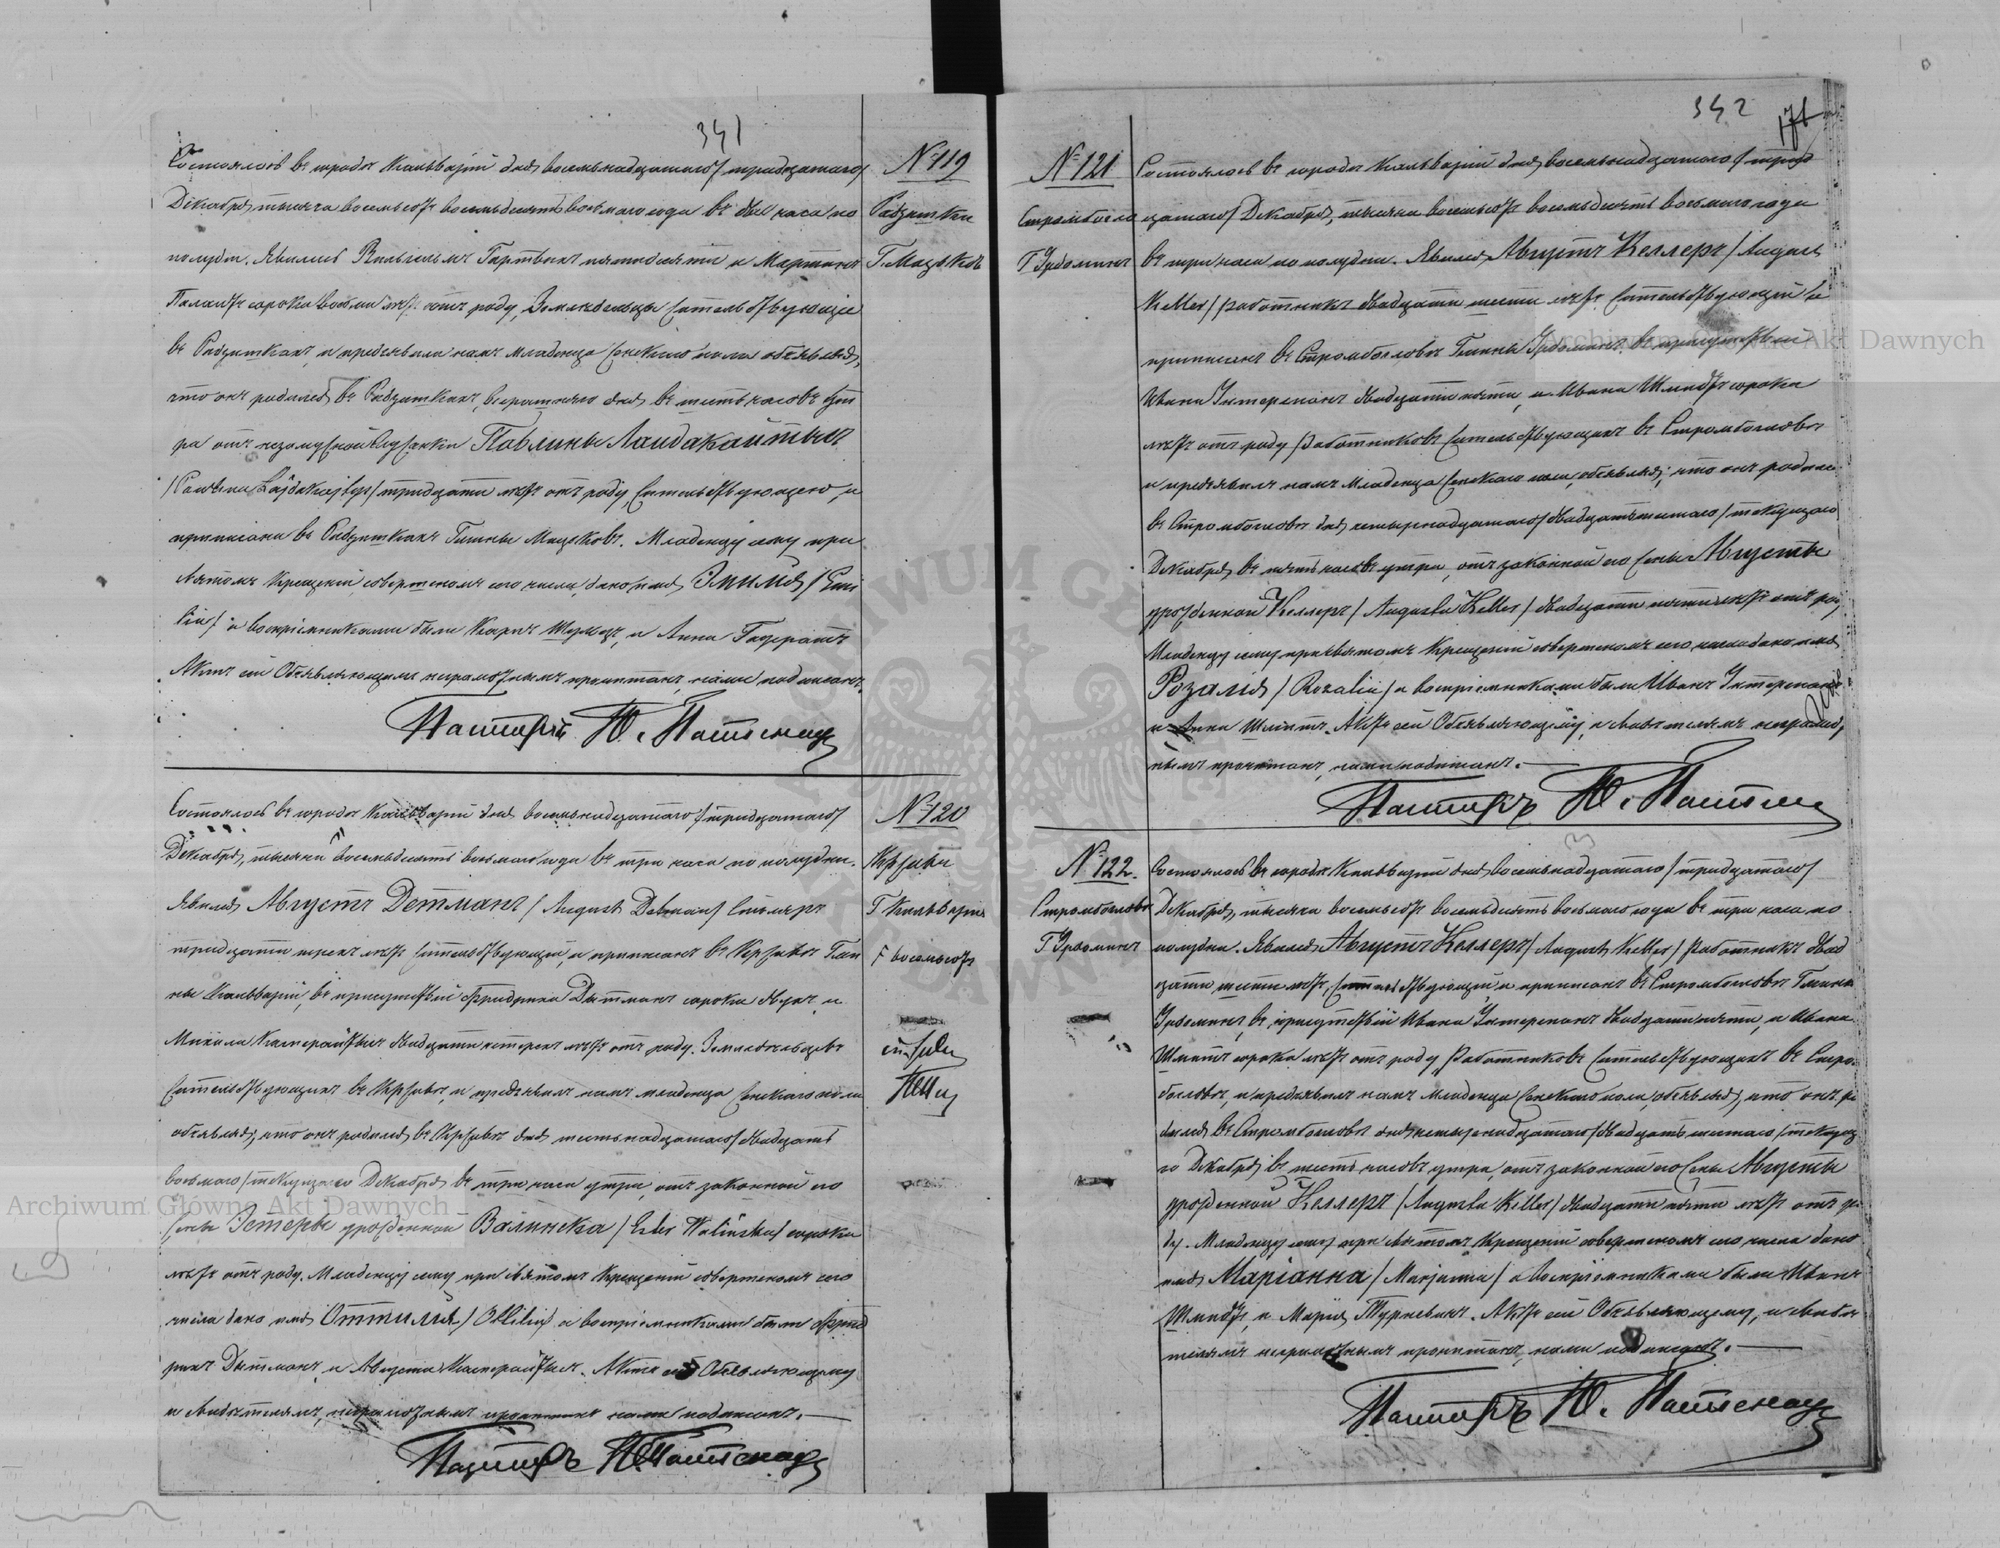 341
Состоялось въ городѣ Кальваріи дня восемьнадцатаго /тридцатаго/
Декабря тысяча восемьсотъ восемьдесятъ восьмаго года въ два часа по
полудни. Явились Вильгельмъ Гартвихъ пятидесяти и Мартинъ
сорока восьми лѣтъ отъ роду, Земледѣльцы жительствующіе
въ Радзишкахъ, и предъявили намъ младенца женскаго пола объявляя,
что онъ родился въ Радзишкахъ, вчерашняго дня въ шесть часовъ ут
ра отъ незамужной Павлины Лайдакайтысъ
тридцати лѣтъ отъ роду, жительствующею, и
приписана въ Радзишкахъ Гмины Мацковъ. Младенцу сему при
Святомъ Крещеніи, совершеномъ сего числа, дано имя Эмилія /Emi
lia/ и воспріемниками были Карлъ Шульцъ, и Анна
Актъ сей Объявляющимъ неграмотнымъ прочитанъ, нами подписанъ.
Пасторъ Ю.
№ 119
Радзишки
Г. Мацковъ
Состоялось въ городѣ Кальваріи дня восемьнадцатаго /тридцатаго/
Декабря, тысяча восемьдесятъ восьмаго года въ три часа по полудни.
Явился Августъ Детманъ /August Detman/ Столяръ
тридцати трехъ лѣтъ жительствующій, и приписанъ въ Гми
ны Кальварія, въ присутствіи Фридриха Дытманъ сорока двухъ и
Михаила двадцати четырехъ лѣтъ отъ роду. Земледѣльцевъ
жительствующихъ въ и предъявилъ намъ младенца женскаго пола
объявляя, что онъ родился въ дня шестьнадцатаго /двадцать
восьмаго/ текущаго Декабря въ три часа утра, отъ законной его
жены Эстеры урожденной Валинска /Ester Walinska/ сорока
лѣтъ отъ роду. Младенцу сему при Святомъ Крещеніи совершеномъ сего
числа дано имя Оттилія /Ottilia/ а воспріемниками были Фрид
рихъ Дытманъ, и Августа Актъ сей Объявляющему
и Свидѣтелямъ, неграмотнымъ прочитанъ нами подписанъ.
Пасторъ Ю.
№ 120
Г. Кальварія
восемьсотъ
342
171
№ 121
Г Урдоминъ
Состоялось въ городѣ Кальваріи дня восемьнадцатаго /трид
цатаго/ Декабря, тысяча восемьсотъ восемьдесятъ восьмаго года
въ три часа по полудни. Явился Августъ Келлеръ /August
Keller/ работникъ двадцати шести лѣтъ жительствующій и
приписанъ въ Стромбогловѣ Гмины Урдоминъ, въ присутствіи
Ивана двадцати пяти, и Ивана Шмидтъ сорока
лѣтъ отъ роду работниковъ жительствующихъ въ Стромбогловѣ
и предъявилъ намъ Младенца женскаго пола, объявляя, что онъ родился
въ Стромбогловѣ дня четырнадцатаго /двадцать шестаго/ текущаго
Декабря, въ пять часовъ утра, отъ законной его жены Августы
урожденной Келлеръ /Augusta Keller/ двадцати пяти лѣтъ отъ роду,
Младенцу сему при Святомъ Крещеніи совершеномъ сего числа дано имя
Розалія /Rozalia/ а воспріемниками были Иванъ
и Анна Шмитъ. Актъ сей Объявляющему, и Свидѣтелямъ неграмот
нымъ прочитанъ, нами подписанъ.
Пасторъ Ю.
№ 122.
Стромбогловъ
Г Урдоминъ
Состоялось въ городѣ Кальваріи дня восемьнадцатаго /тридцатаго/
Декабря, тысяча восемьсотъ восемьдесятъ восьмаго года въ три часа по
полудни. Явился Августъ Келлеръ /August Keller/ работникъ двад
цати шести лѣтъ, жительствующій, и приписанъ въ Стромбогловѣ Гмины
Урдоминъ, въ присутствіи Ивана двадцати пяти, и Ивана
Шмитъ сорока лѣтъ отъ роду, работниковъ жительствующихъ въ Стром
богловѣ, и предъявилъ намъ Младенца женскаго пола, объявляя, что онъ ро
дился въ Стромбогловѣ дня четырнадцатаго /двадцать шестаго/ текуща
го Декабря въ шесть часовъ утра, отъ законной его жены Августы
урожденной Келлеръ /Augusta Keller/ двадцати пяти лѣтъ отъ ро
ду. Младенцу сему при Святомъ Крещеніи совершеномъ сего числа дано
имя Маріанна /Marjanna/ а воспріемниками были Иванъ
Шмидтъ, и Марія Актъ сей Объявляющему, и Свидѣ
телямъ неграмотнымъ прочитанъ, нами подписанъ.
Пасторъ Ю.
Archiwum Główne Akt Dawnych
Archiwum Główne Akt Dawnych